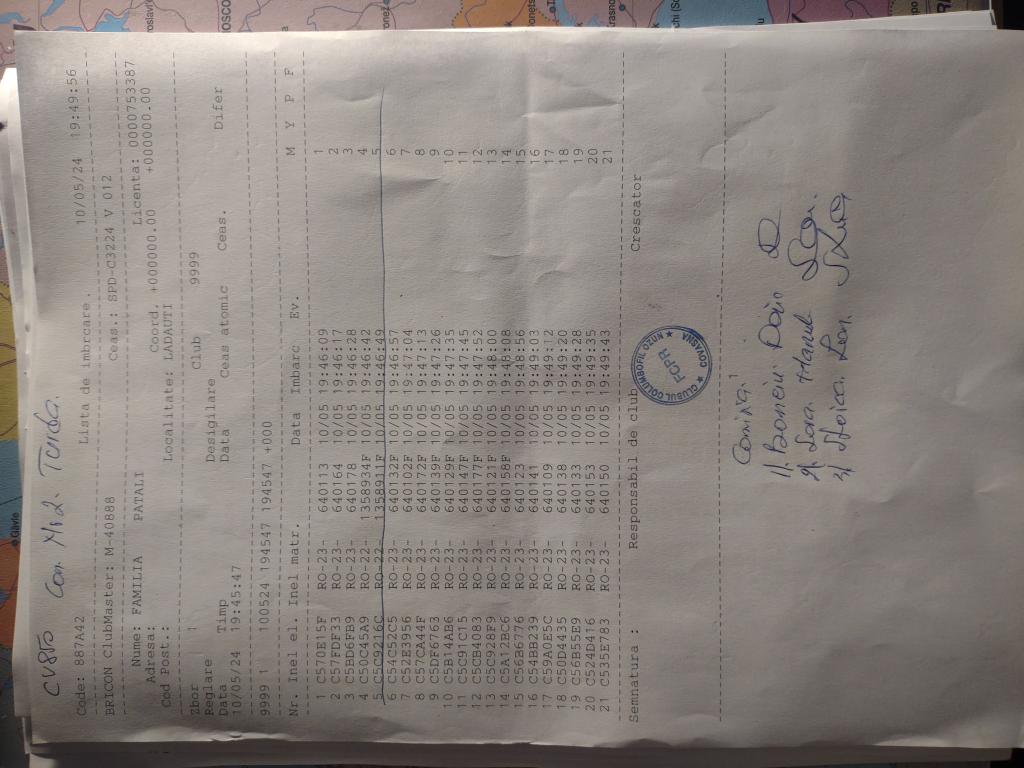 CV8TO Con. Nr 2. Turda.
Code: 887A42 Lista de imbrcare. 10/05/24 19:49:56
BRICON ClubMaster: M-40888 Ceas.: SPD-C3224 V 012
Nume: FAMILIA PATALI Licenta: 0000753387
Adresa: Coord. +000000.00 +000000.00
Cod Post.: Localitate: LADAUTI
Zbor 1 Club 9999
Reglare Desigilare
Data Timp Data Ceas atomic Ceas. Difer
10/05/24 19:45:47
9999 1 100524 194547 194547 +000
Nr. Inel el. Inel matr. Data Imbarc Ev. M Y P F
1 C570E15F RO-23- 640113 10/05 19:46:09 1
2 C57FDF33 RO-23- 640164 10/05 19:46:17 2
3 C5BD6FB9 RO-23- 640178 10/05 19:46:28 3
4 C50C45A9 RO-22- 1358934F 10/05 19:46:42 4
5 C5C9216C RO-22- 1358911F 10/05 19:46:49 5
6 C54C52C5 RO-23- 640132F 10/05 19:46:57 6
7 C52E3956 RO-23- 640102F 10/05 19:47:04 7
8 C57CA44F RO-23- 640172F 10/05 19:47:13 8
9 C5DF6763 RO-23- 640139F 10/05 19:47:26 9
10 C5B14AB6 RO-23- 640129F 10/05 19:47:35 10
11 C5C91C15 RO-23- 640147F 10/05 19:47:45 11
12 C5CB4083 RO-23- 640177F 10/05 19:47:52 12
13 C5C928F9 RO-23- 640121F 10/05 19:48:00 13
14 C5A12BC6 RO-23- 640158F 10/05 19:48:08 14
15 C56B6776 RO-23- 640123 10/05 19:48:56 15
16 C54BB239 RO-23- 640141 10/05 19:49:03 16
17 C59A0E5C RO-23- 640109 10/05 19:49:12 17
18 C50D4435 RO-23- 640138 10/05 19:49:20 18
19 C56B55E9 RO-23- 640133 10/05 19:49:28 19
20 C524D416 RO-23- 640153 10/05 19:49:35 20
21 C535E783 RO-23- 640150 10/05 19:49:43 21
Semnatura : Responsabil de club Crescator
CLUBUL COLUMBOFIL OZUN ★ COVASNA ★
FCPR
2)
3) Stoica Ion.